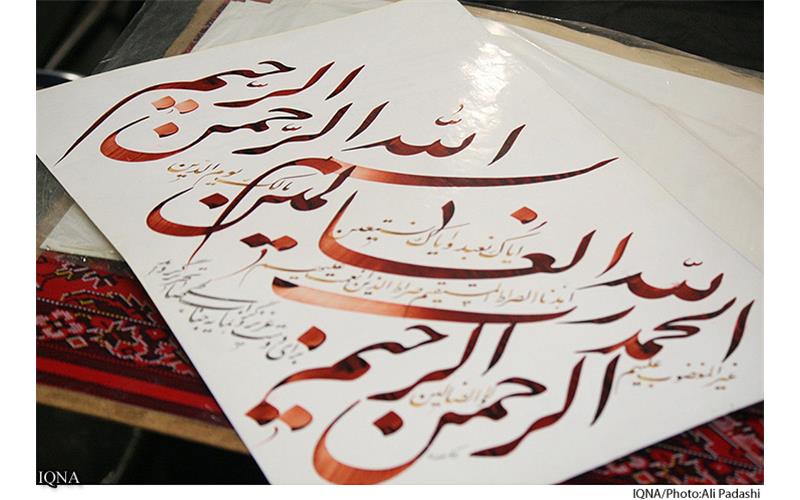 بسم الله الرحمن الرحیم
الحمد لله رب العالمین
الرحمن الرحیم
مالک یوم الدین
ایاک نعبد و ایاک نستعین
اهدنا الصراط المستقیم صراط الذین انعمت علیهم
غیر المغضوب علیهم
ولا الضالین
برای دوست عزیز
IQNA
IQNA/Photo:Ali Padashi